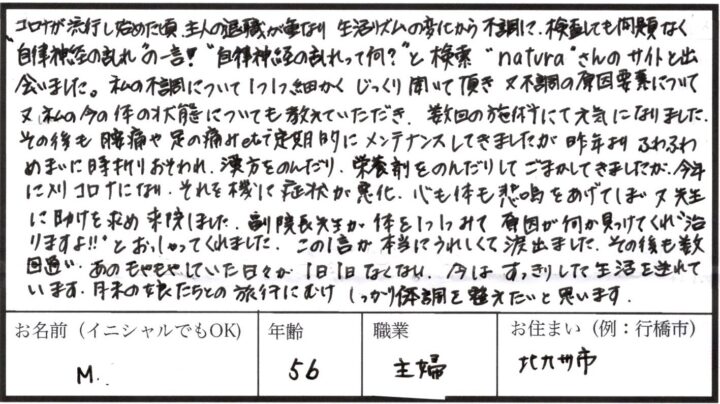 コロナが流行し始めた頃、主人の退職が重なり 生活リズムの変化から不調に、検査しても問題なく
"自律神経の乱れ"の一言! "自律神経の乱れって何?"と検索 "natura"さんのサイトと出
会いました。私の不調について1つ1つ細かく じっくり聞いて頂き 又不調の原因要素について
又、私の今の体の状態についても教えていただき、数回の施術にて元気になりました。
その後も 腰痛や足の痛みetcで定期的にメンテナンスしてきましたが 昨年より ふわふわ
めまいに時折りおそわれ、漢方をのんだり、栄養剤をのんだりしてごまかしてきましたが、今年
に入りコロナになり、それを機に症状が悪化、心も体も悲鳴をあげてしまい 又先生
に助けを求め来院しました。副院長先生が体を1つ1つみて 原因が何か見つけてくれ"治
りますよ!!"とおっしゃってくれました。この1言が本当にうれしくて涙出ました。その後も数
回通い あのもやもやしていた日々が 1日1日なくなり、今は すっきりした生活を送れて
います。月末の娘たちとの旅行にむけ しっかり体調を整えたいと思います。
お名前(イニシャルでもOK) 年齢 職業 お住まい(例:行橋市)
M. 56 主婦 北九州市